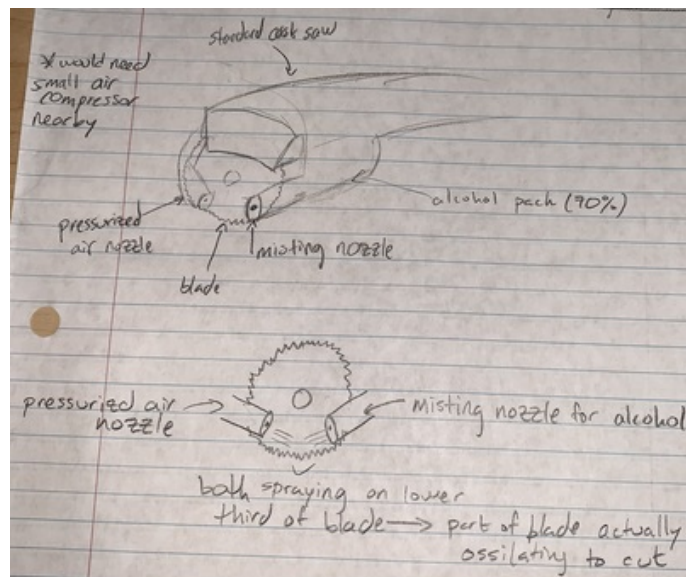 standard cast saw
* would need
small air
compressor
nearby
alcohol pack (90%)
pressurized
air nozzle
misting nozzle
blade
pressurized air
nozzle
misting nozzle for alcohol
both spraying on lower
third of blade → part of blade actually
ossilating to cut